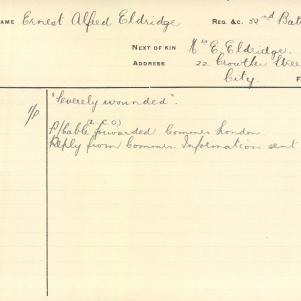 NAME Ernest Alfred Eldridge REG. &C. 52nd Bat
NEXT OF KIN Mrs E. Eldridge.
ADDRESS 22 Crowther Stree
City. F
"Severely wounded".
(A.C.O)
P/Cable forwarded Commrs London.
Reply from Commrs. Information sent